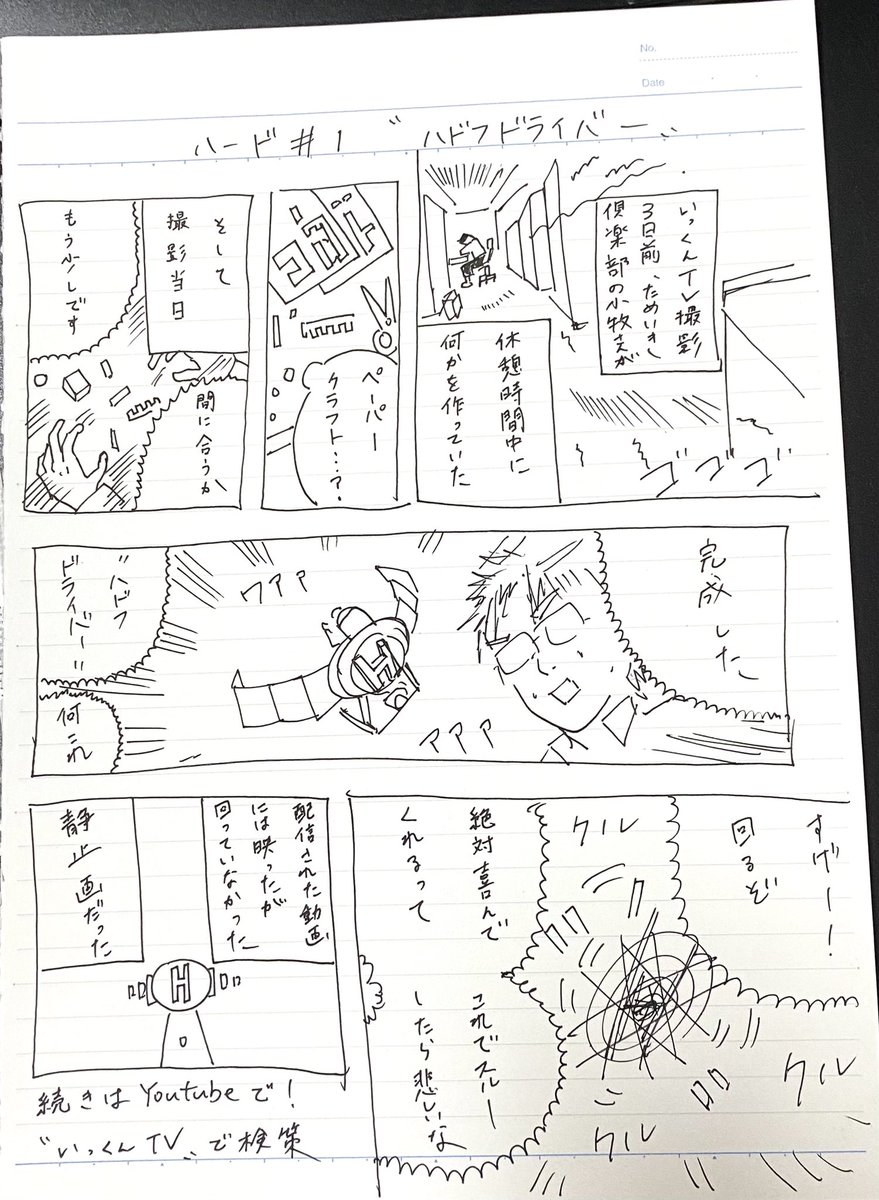 No.
Date
ハード#1 "ハドフドライバー"
いっくんTV撮影
3日前、ためいき
倶楽部の小牧さんが
休憩時間中に
何かを作っていた
ゴゴゴ
コント
ペーパー
クラフト…?
そして
撮影当日
間に合うか
もう少しです
完成した
ワァァ
アアア
H
"ハドフ
ドライバー"
何これ
すげー!
回るぞ
クルル
クルル
クルル
絶対喜んで
くれるって
これでスルー
したら悲しいな
配信された動画
には映ったが
回っていなかった
静止画だった
H
続きはYoutubeで!
"いっくんTV"で検策